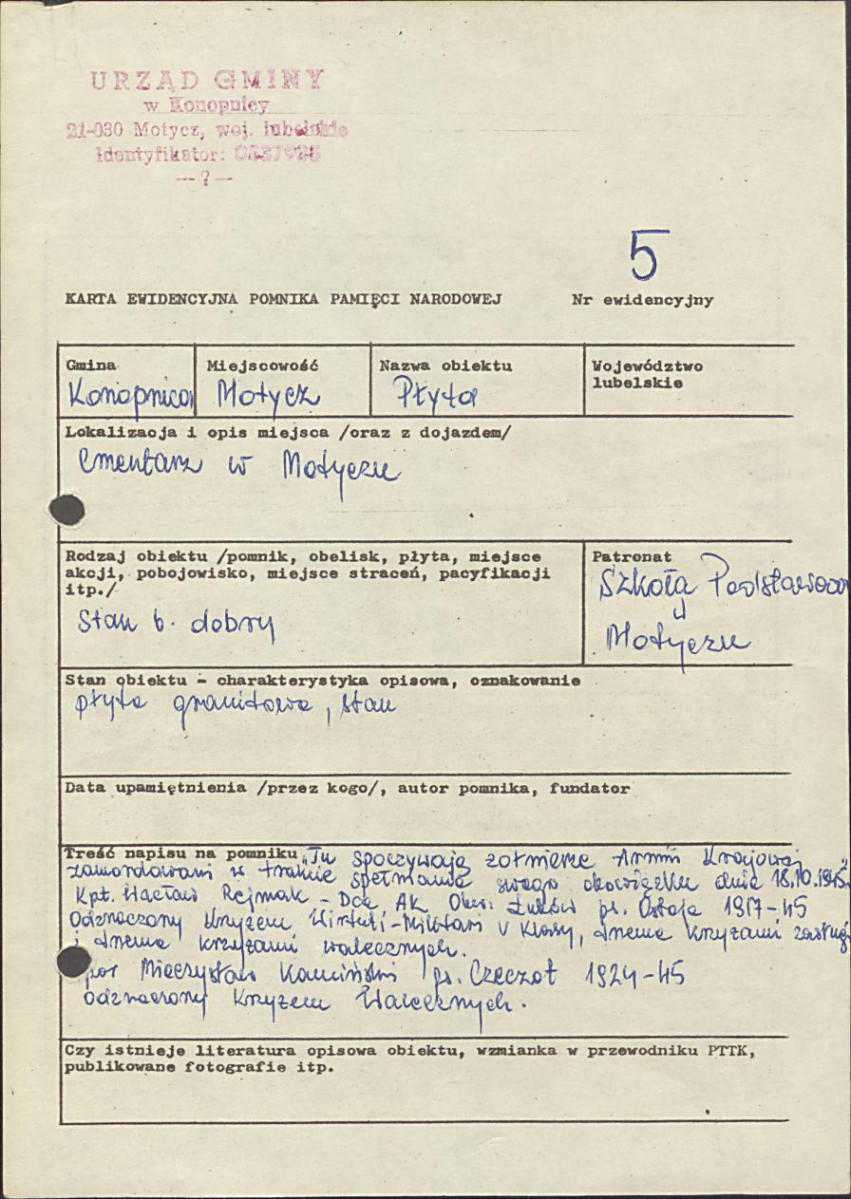 URZĄD GMINY
w Konopnicy
21-030 Motycz, woj. lubelskie
Identyfikator:
— 7 —
5
KARTA EWIDENCYJNA POMNIKA PAMIĘCI NARODOWEJ Nr ewidencyjny
Gmina Miejscowość Nazwa obiektu Województwo
lubelskie
Konopnica Motycz Płyta
Lokalizacja i opis miejsca /oraz z dojazdem/
Cmentarz w Motyczu
Rodzaj obiektu /pomnik, obelisk, płyta, miejsce
akcji, pobojowisko, miejsce straceń, pacyfikacji
itp./
Stan b. dobry
Patronat
Szkoła Podstawowa
w
Motyczu
Stan obiektu - charakterystyka opisowa, oznakowanie
płyta granitowa, stan
Data upamiętnienia /przez kogo/, autor pomnika, fundator
Treść napisu na pomniku „Tu spoczywają żołnierze Armii Krajowej"
zamordowani w trakcie spełniania swego obowiązku dnia 18.10.1945r.
Kpt. Wacław Rejmak - Dca AK Obw. Łuków ps. Ostoja 1917-45
Odznaczony Krzyżem Wirtuti-Militari V klasy, dwema krzyżami zasługi
i dwema krzyżami walecznych.
por Mieczysław Kamiński ps. Czeczot 1924-45
odznaczony Krzyżem Walecznych.
Czy istnieje literatura opisowa obiektu, wzmianka w przewodniku PTTK,
publikowane fotografie itp.